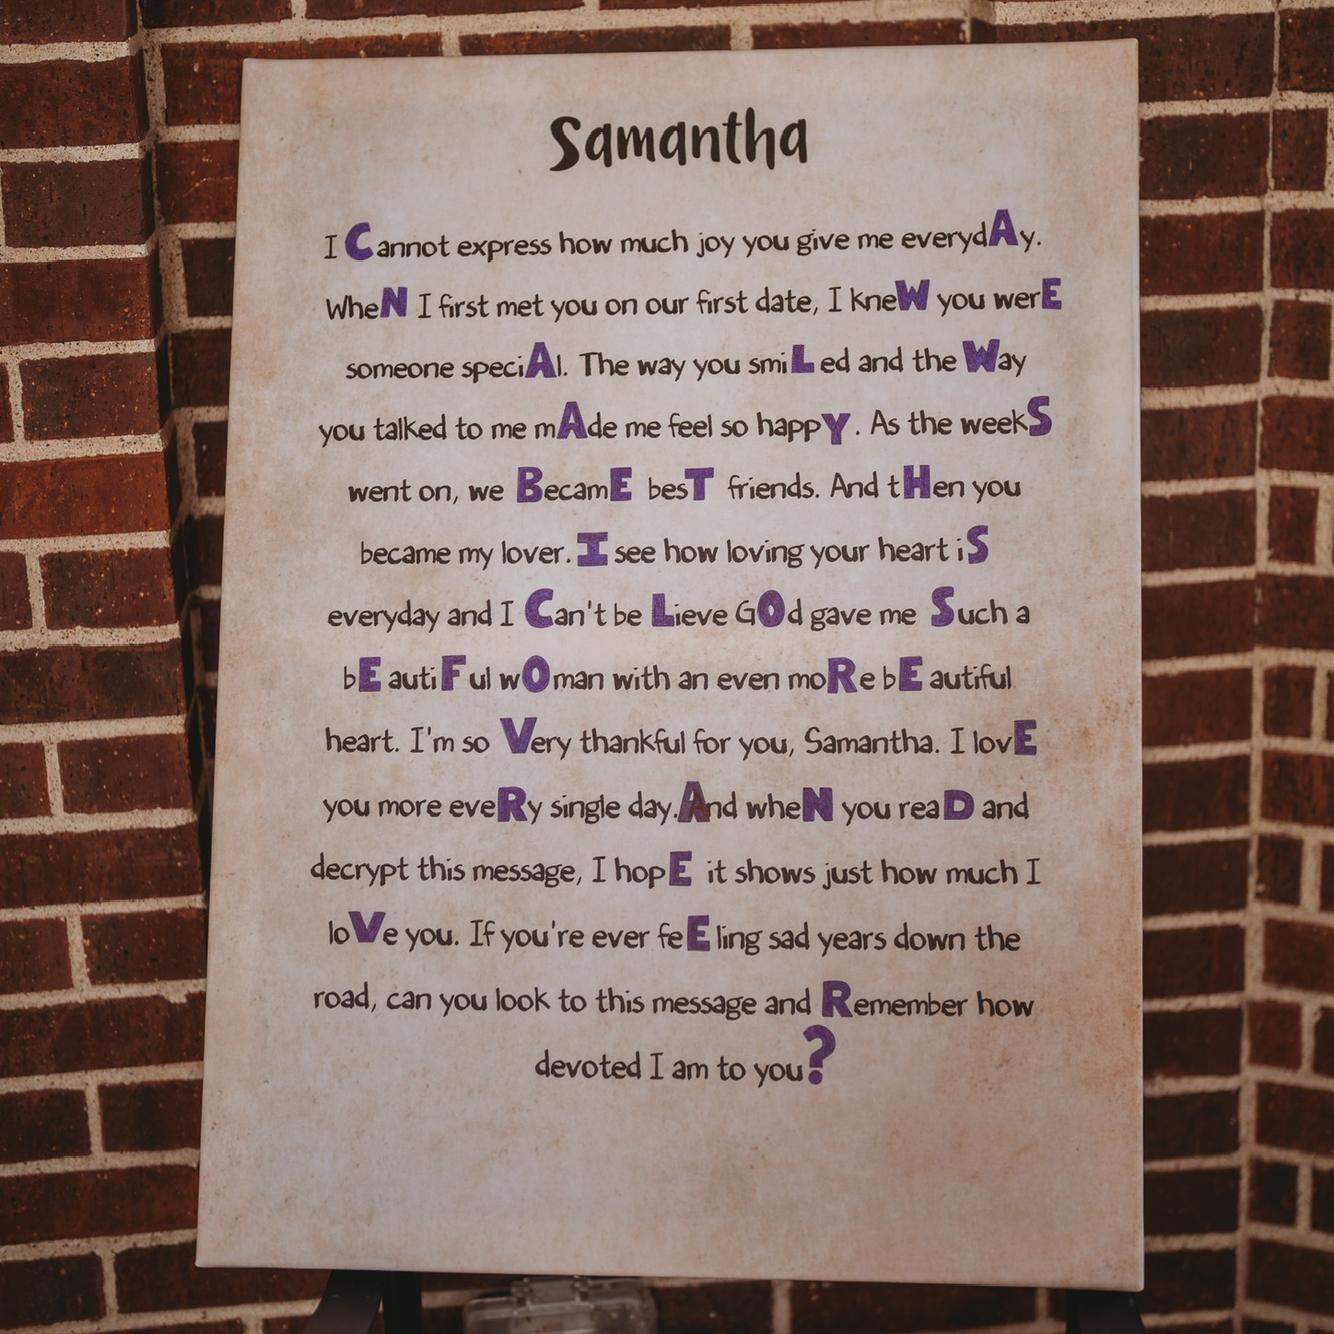 Samantha
I Cannot express how much joy you give me everydAy.
WheN I first met you on our first date, I kneW you werE
someone speciAl. The way you smiLed and the Way
you talked to me mAde me feel so happY. As the weekS
went on, we BecamE besT friends. And tHen you
became my lover. I see how loving your heart iS
everyday and I Can't beLieve GOd gave me Such a
bEautiFul wOman with an even moRe bEautiful
heart. I'm so Very thankful for you, Samantha. I lovE
you more eveRy single day. And wheN you reaD and
decrypt this message, I hopE it shows just how much I
loVe you. If you're ever feEling sad years down the
road, can you look to this message and Remember how
devoted I am to you?